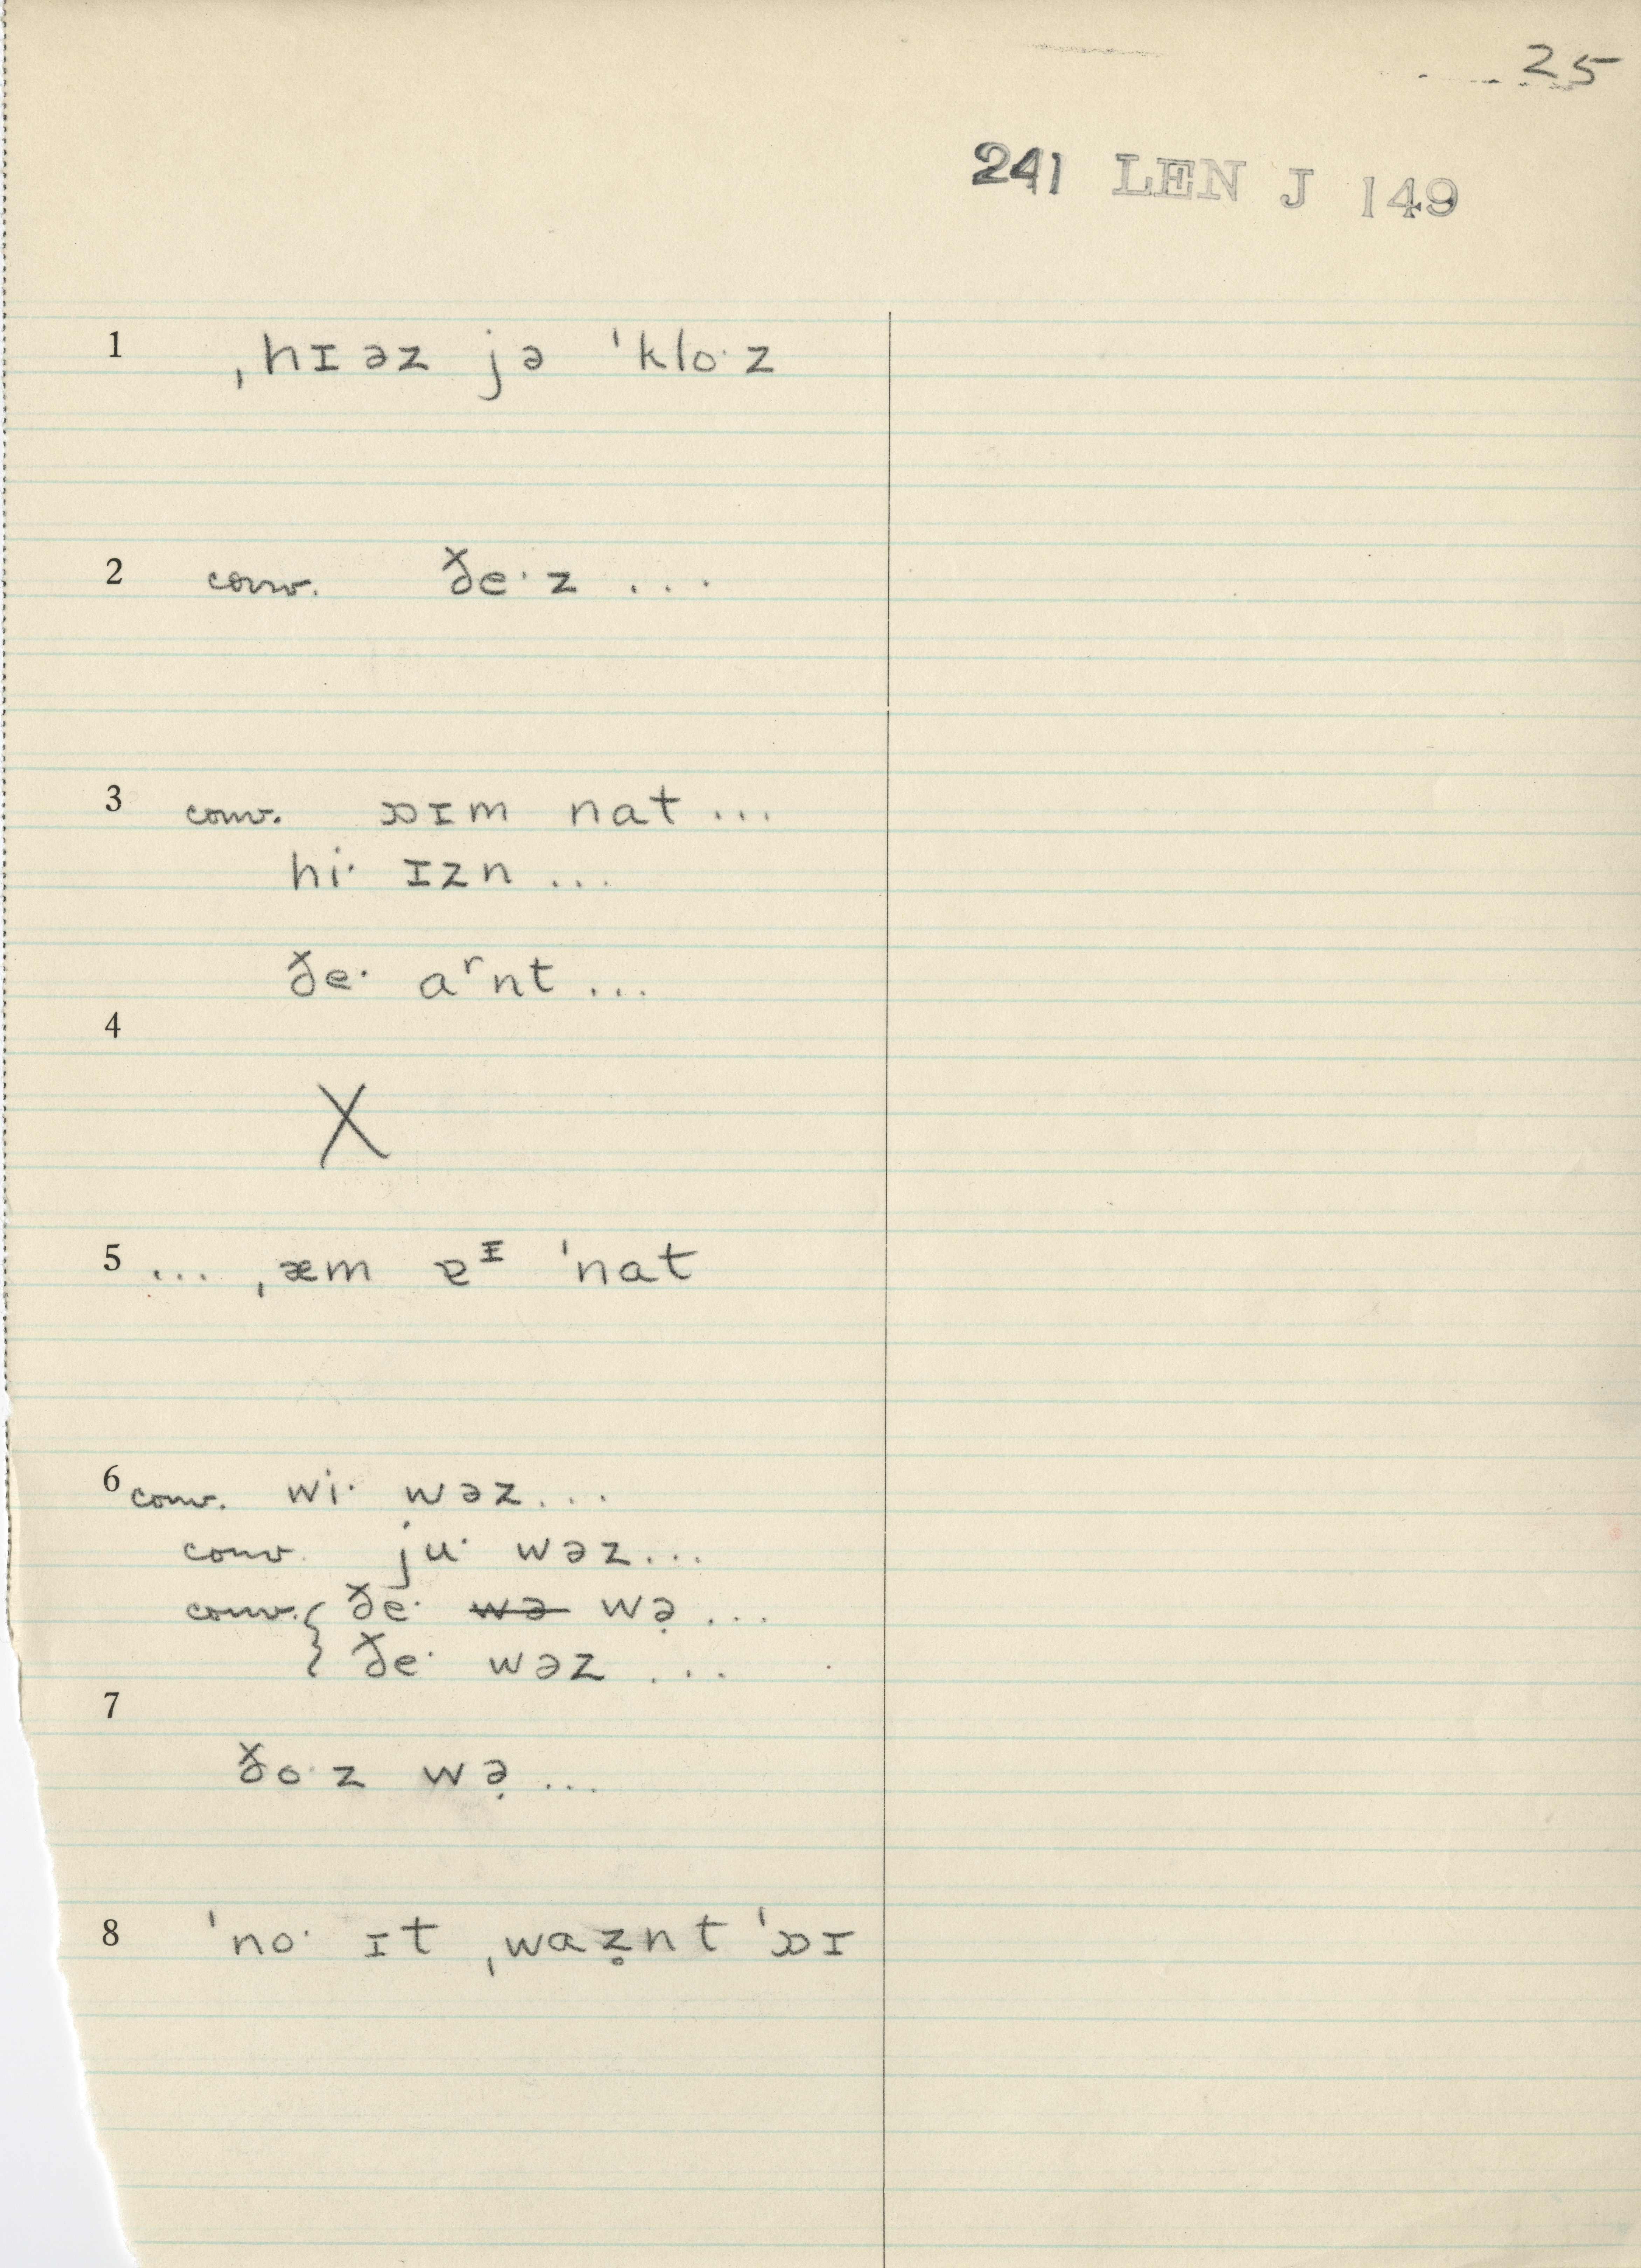 25
241 LEN J 149
1 ˌhɪəz jə ˈkloˑz
2 conv. ðeˑz ...
3 conv. ɒɪm nat ...
hiˑ ɪzn ...
ðeˑ aʳnt ...
4
X
5 ... ˌæm ɐᶦ ˈnat
6 conv. wiˑ wəz...
conv. juˑ wəz...
conv. { ðeˑ ~~wə~~ wə̣ ...
ðeˑ wəz ...
7
ðoˑz wə̣ ...
8 ˈnoˑ ɪt ˌwaz̥nt ˈɒɪ